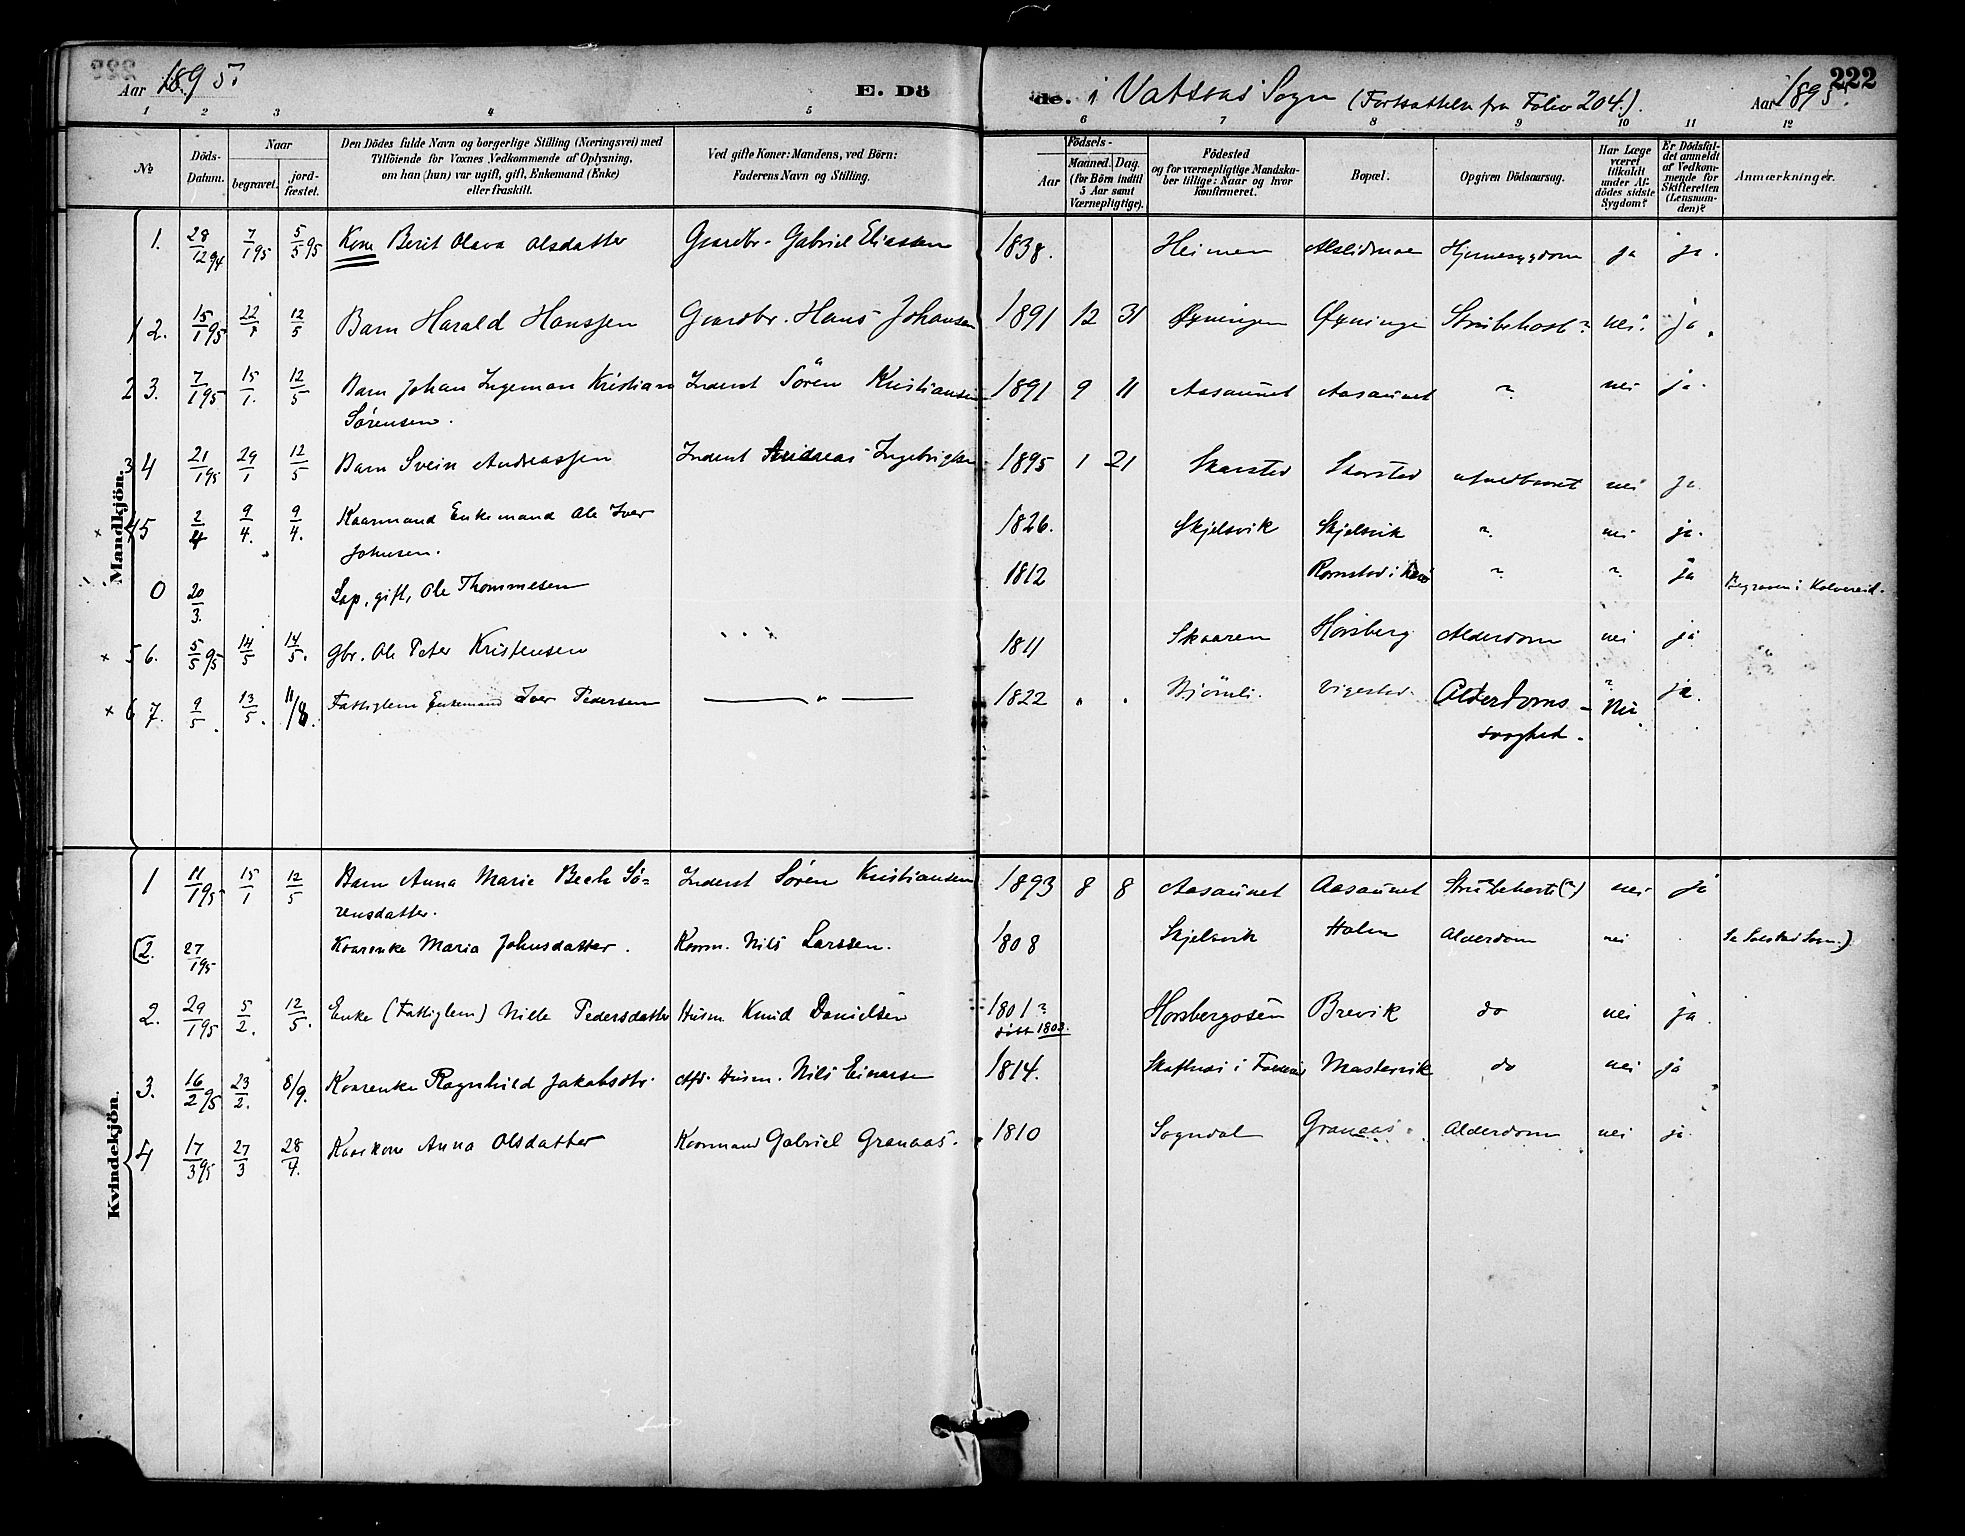 Aar 1895.
E. Döde. i Vatsaas Sogn (Fortsættelse fra Folio 204.).
Aar 1895.
222
1 2 3 4 5 6 7 8 9 10 11 12
No
Döds-Datum.
Naar
begravet.
jordfæstet.
Den Dödes fulde Navn og borgerlige Stilling (Næringsvei) med
Tilföiende for Voxnes Vedkommende af Oplysning,
om han (hun) var ugift, gift, Enkemand (Enke)
eller fraskilt.
Ved gifte Koner: Mandens, ved Börn:
Faderens Navn og Stilling.
Födsels-
Aar
Maaned. Dag.
(for Börn indtil
5 Aar samt
Værnepligtige).
Födested
og for værnepligtige Mandskaber tillige: Naar og hvor
konfirmeret.
Bopæl.
Opgiven Dödsaarsag.
Har Læge
været
tilkaldt
under Afdödes sidste
Sygdom?
Er Dödsfaldet anmeldt
af Vedkommende for
Skifteretten
(Lensmanden)?
Anmærkninger.
Mandkjön.
1. 28/12 94 7/1 95 5/5 95 Kone Berit Olava Olsdatter Gaardbr. Gabriel Eliassen 1838. Heimen Hjernesygdom ja ja.
1 2. 15/1 95 22/1 12/5 Barn Harald Hanssen Gaardbr. Hans Johansen 1891 12 31 Øyningen Øyninge Strubehost? nei. ja.
2 3. 7/1 95 15/1. 12/5 Barn Johan Ingeman Kristian Inderst Sören Kristiansen 1891 9 11 Aasaunet Aasaunet ? nei ja.
Sørensen.
3 4 21/1 95 29/1 12/5 Barn Svein Andreassen Inderst Andreas Ingebrigtsen 1895 1 21 Skarstad Skarstad nei ja.
x 4 5 2/4 9/4. 9/4. Kaarmand Enkemand Ole Iver 1826. Skjelsvik Skjelsvik ? nei ja.
Johnsen.
0 20/3. Lap, gift, Ole Thommesen 1812 ? ? ja Begraven i Kolvereid.
x 5 6. 5/5 95 14/5 14/5. gbr. Ole Peter Kristensen 1811 Skaaren Horsberg Alderdom nei ja
x 6 7. 9/5. 13/5. 11/8. Fattiglem Enkemand Iver Pedersen — „ — 1822 „ „ Bjömli. Vigestad. Alderdoms- ? Nei ja.
svaghed.
Kvindekjön.
1 11/1 95 15/1 12/5 Barn Anna Marie Bech Sö- Inderst Sören Kristiansen 1893 8 8 Aasaunet Aasaunet Strubehoste(?) nei ja
rensdatter.
(2. 27/1 95 Kaarenke Maria Johnsdatter. Kaarm. Nils Larssen. 1808 Skjelsvik Holm Alderdom nei Se Solstad Sogn.)
2. 29/1 95 5/2. 12/5. Enke (Fattiglem) Nille Pedersdatter Husm Knud Danielsen 1801? Horsbergsøen Brevik do nei ja.
døbt 1803.
3. 16/2 95 23/2. 8/9. Kaarenke Ragnhild Jakobsdtr. Afd. Husm. Nils Einarsen 1814. Mastervik do nei ja
4 17/3 95 27/3 28/4. Kaarkone Anna Olsdatter Kaarmand Gabriel Granaas. 1810 Sogndal Granaas. Alderdom nei ja